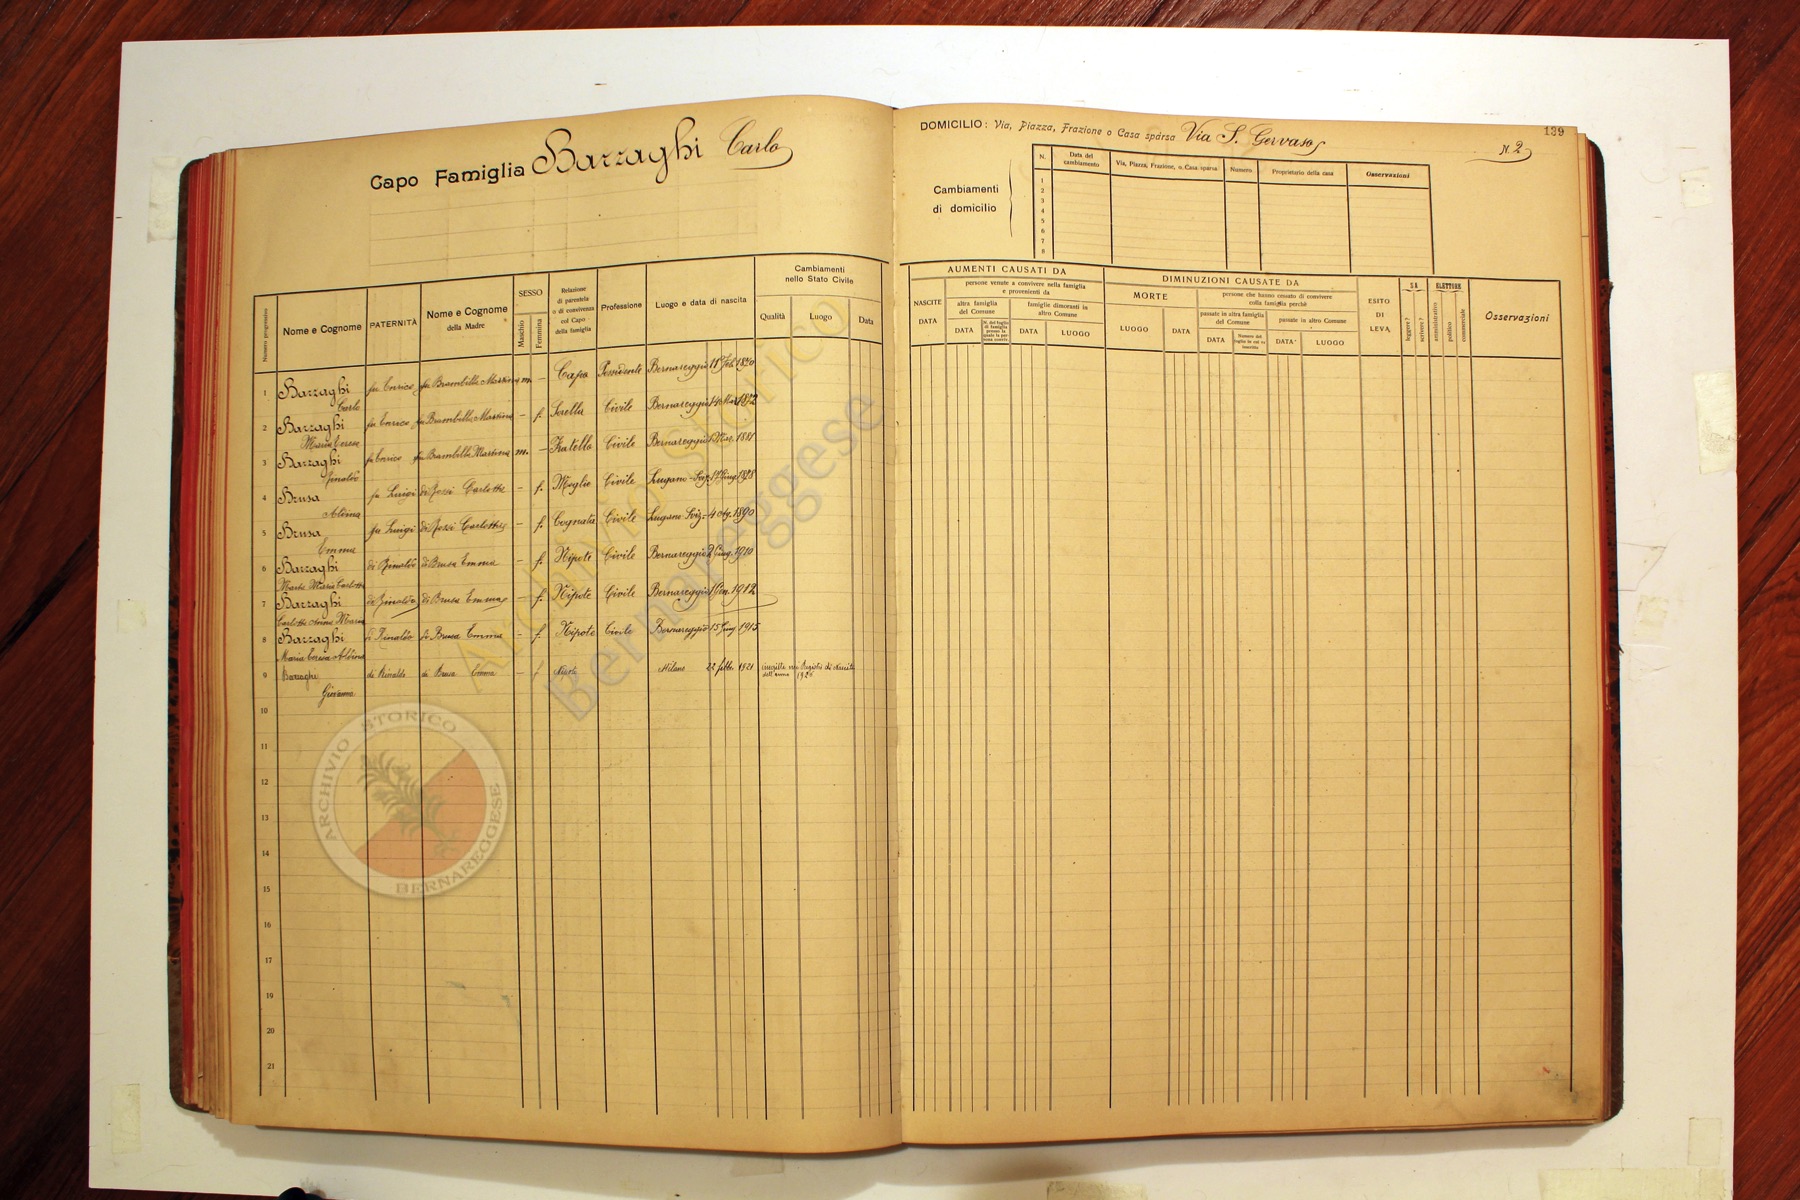 Capo Famiglia Barzaghi Carlo
Numero progressivo
Nome e Cognome
PATERNITÀ
Nome e Cognome
della Madre
SESSO
Maschio
Femmina
Relazione
di parentela
o di convivenza
col Capo
della famiglia
Professione
Luogo e data di nascita
Cambiamenti
nello Stato Civile
Qualità
Luogo
Data
1 Barzaghi fu Enrico fu Brambilla Martina m. – Capo Possidente Bernareggio 11 Feb. 1870
Carlo
2 Barzaghi fu Enrico fu Brambilla Martina – f. Sorella Civile Bernareggio 14 Mar. 1872
Maria Teresa
3 Barzaghi fu Enrico fu Brambilla Martina m. – Fratello Civile Bernareggio 1881
Rinaldo
4 Brusa fu Luigi di Rossi Carlotta – f. Moglie Civile Lugano
Aldina
5 Brusa fu Luigi di Rossi Carlotta – f. Cognata Civile Lugano Sviz. 4 1890
Emma
6 Barzaghi di Rinaldo di Brusa Emma – f. Nipote Civile Bernareggio 2 Giug. 1910
Maria Carlotta
7 Barzaghi di Rinaldo di Brusa Emma – f. Nipote Civile Bernareggio 1 Gen. 1912
Carlotta Anna Maria
8 Barzaghi di Rinaldo di Brusa Emma – f. Nipote Civile Bernareggio 15 Giug. 1915
Maria Teresa Aldina
9 Barzaghi di Rinaldo di Brusa Emma – f Nipote Milano 22 febb. 1921 nei Registri di Nascita
dell'anno 1926
Giovanna
10
11
12
13
14
15
16
17
18
19
20
21
ARCHIVIO STORICO
BERNAREGGESE
Archivio Storico
Bernareggese
139
DOMICILIO: Via, Piazza, Frazione o Casa sparsa Via S. Gervaso
N. 2
Cambiamenti
di domicilio
N.
Data del
cambiamento
Via, Piazza, Frazione, o Casa sparsa
Numero
Proprietario della casa
Osservazioni
1
2
3
4
5
6
7
8
AUMENTI CAUSATI DA
NASCITE
DATA
persone venute a convivere nella famiglia
e provenienti da
altra famiglia
del Comune
DATA
N. del foglio
di famiglia
presso la
quale la per
sona conviv.
famiglie dimoranti in
altro Comune
DATA
LUOGO
DIMINUZIONI CAUSATE DA
MORTE
LUOGO
DATA
persone che hanno cessato di convivere
colla famiglia perchè
passate in altra famiglia
del Comune
DATA
Numero del
foglio in cui va
inscritto
passate in altro Comune
DATA
LUOGO
ESITO
DI
LEVA
SA
leggere?
scrivere?
ELETTORE
amministrativo
politico
commerciale
Osservazioni